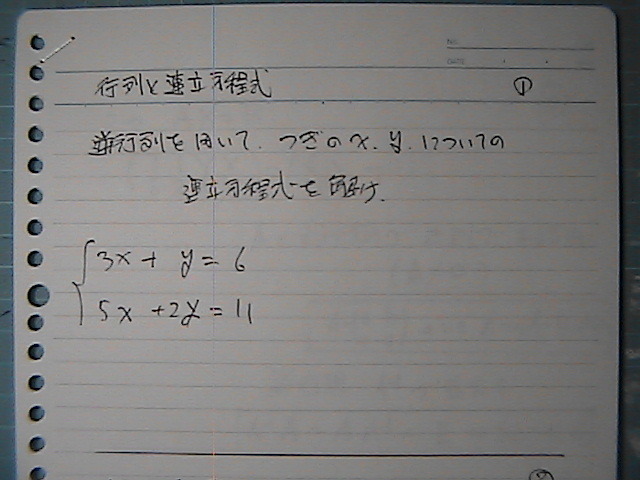 NO.
DATE
行列と連立方程式 ①
逆行列を用いて、つぎのx、y、についての
連立方程式を解け、
3x + y = 6
5x + 2y = 11